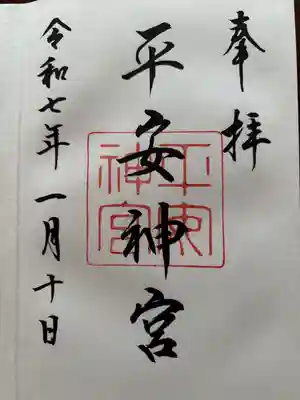 奉拝
平安神宮
平安
神宮
令和七年一月十日